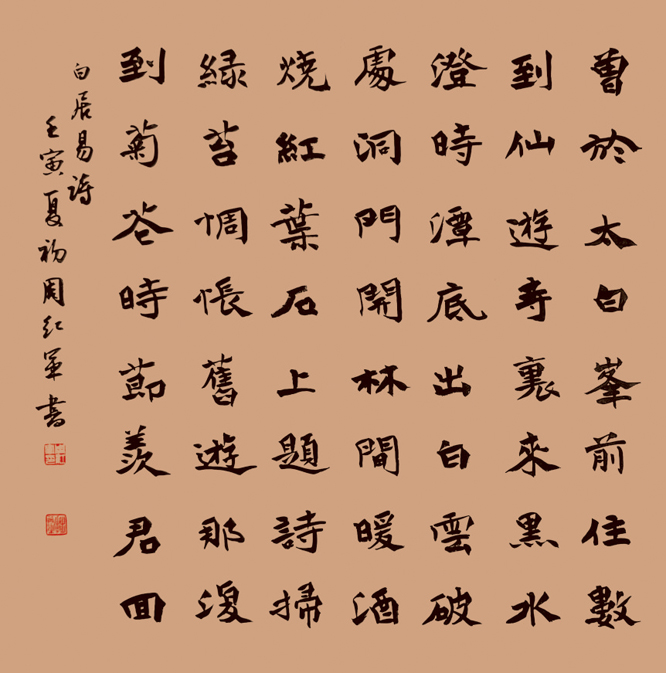 曾於太白峯前住數
到仙遊寺裏來黑水
澄時潭底出白雲破
處洞門開林間暖酒
燒紅葉石上題詩掃
緑苔惆悵舊遊那復
到菊花時節羨君回
白居易詩
壬寅夏初周红軍書